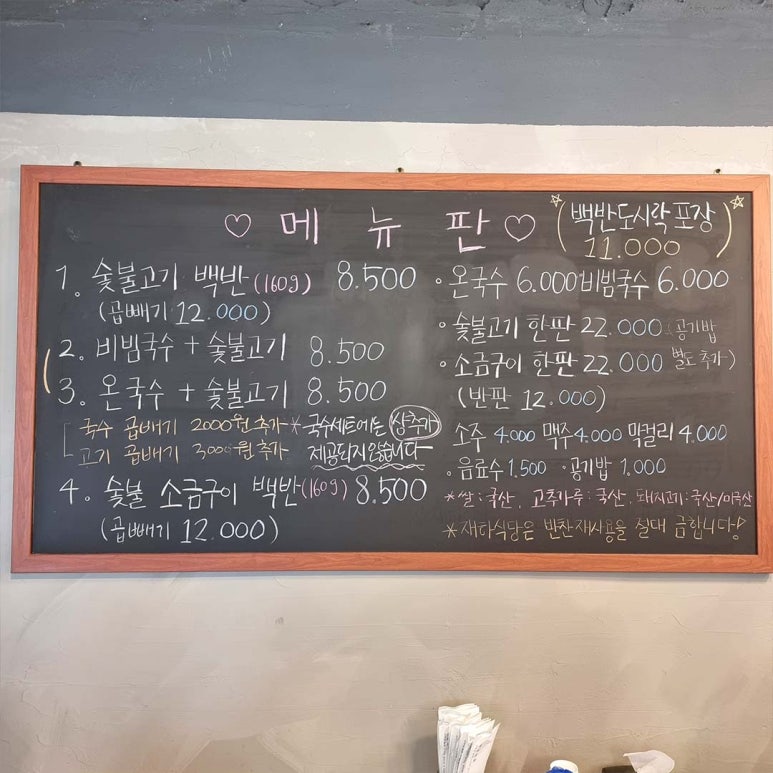 ♡ 메 뉴 판 ♡
☆(백반도시락포장
11.000)☆
1. 숯불고기 백반(160g) 8.500
(곱빼기 12.000)
2. 비빔국수 + 숯불고기 8.500
3. 온국수 + 숯불고기 8.500
국수 곱배기 2000원 추가 *국수세트에는 상추가
고기 곱배기 3000원 추가 제공되지 않습니다
4. 숯불 소금구이 백반(160g) 8.500
(곱빼기 12.000)
◦온국수 6.000 비빔국수 6.000
◦숯불고기 한판 22.000 (공기밥
◦소금구이 한판 22.000 별도추가)
(반판 12.000)
소주 4.000 맥주 4.000 막걸리 4.000
◦음료수 1.500 ◦공기밥 1.000
*쌀:국산, 고추가루:국산, 돼지고기:국산/미국산
*재하식당은 반찬재사용을 절대 금합니다!